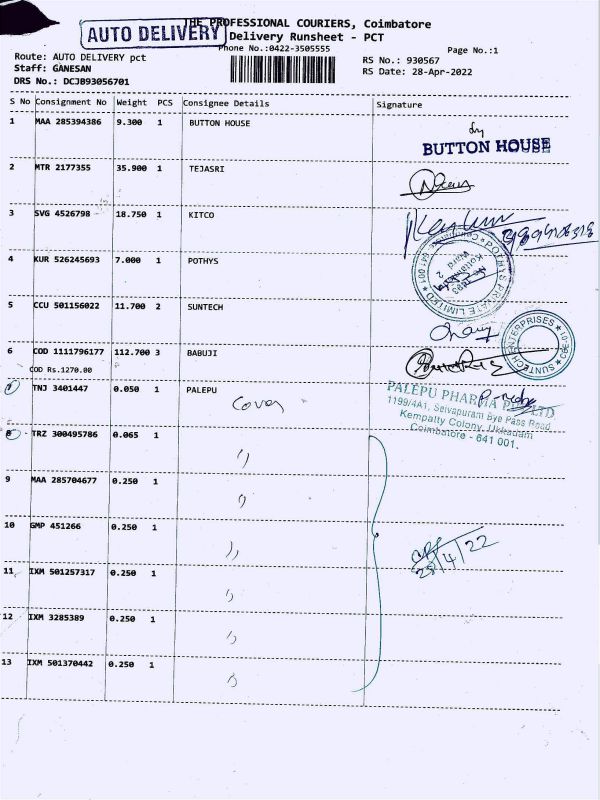 THE PROFESSIONAL COURIERS, Coimbatore
AUTO DELIVERY
Delivery Runsheet - PCT
Phone No.:0422-3505555
Page No.:1
Route: AUTO DELIVERY pct
RS No.: 930567
Staff: GANESAN
RS Date: 28-Apr-2022
DRS No.: DCJB93056701
S No Consignment No Weight PCS Consignee Details Signature
1 MAA 285394386 9.300 1 BUTTON HOUSE
BUTTON HOUSE
2 MTR 2177355 35.900 1 TEJASRI
3 SVG 4526798 18.750 1 KITCO
4 KUR 526245693 7.000 1 POTHYS
POTHYS PRIVATE LIMITED
641 001
5 CCU 501156022 11.700 2 SUNTECH
SUNTECH ENTERPRISES
6 COD 1111796177 112.700 3 BABUJI
COD Rs.1270.00
7 TNJ 3401447 0.050 1 PALEPU
Cover
PALEPU PHARMA
1199/4A1, Selvapuram Bye Pass Road,
Kempatty Colony, Ukkadam
Coimbatore - 641 001.
8 TRZ 300495786 0.065 1 ''
9 MAA 285704677 0.250 1 ''
10 GMP 451266 0.250 1 ''
28/4/22
11 IXM 501257317 0.250 1 ''
12 IXM 3285389 0.250 1 ''
13 IXM 501370442 0.250 1 ''